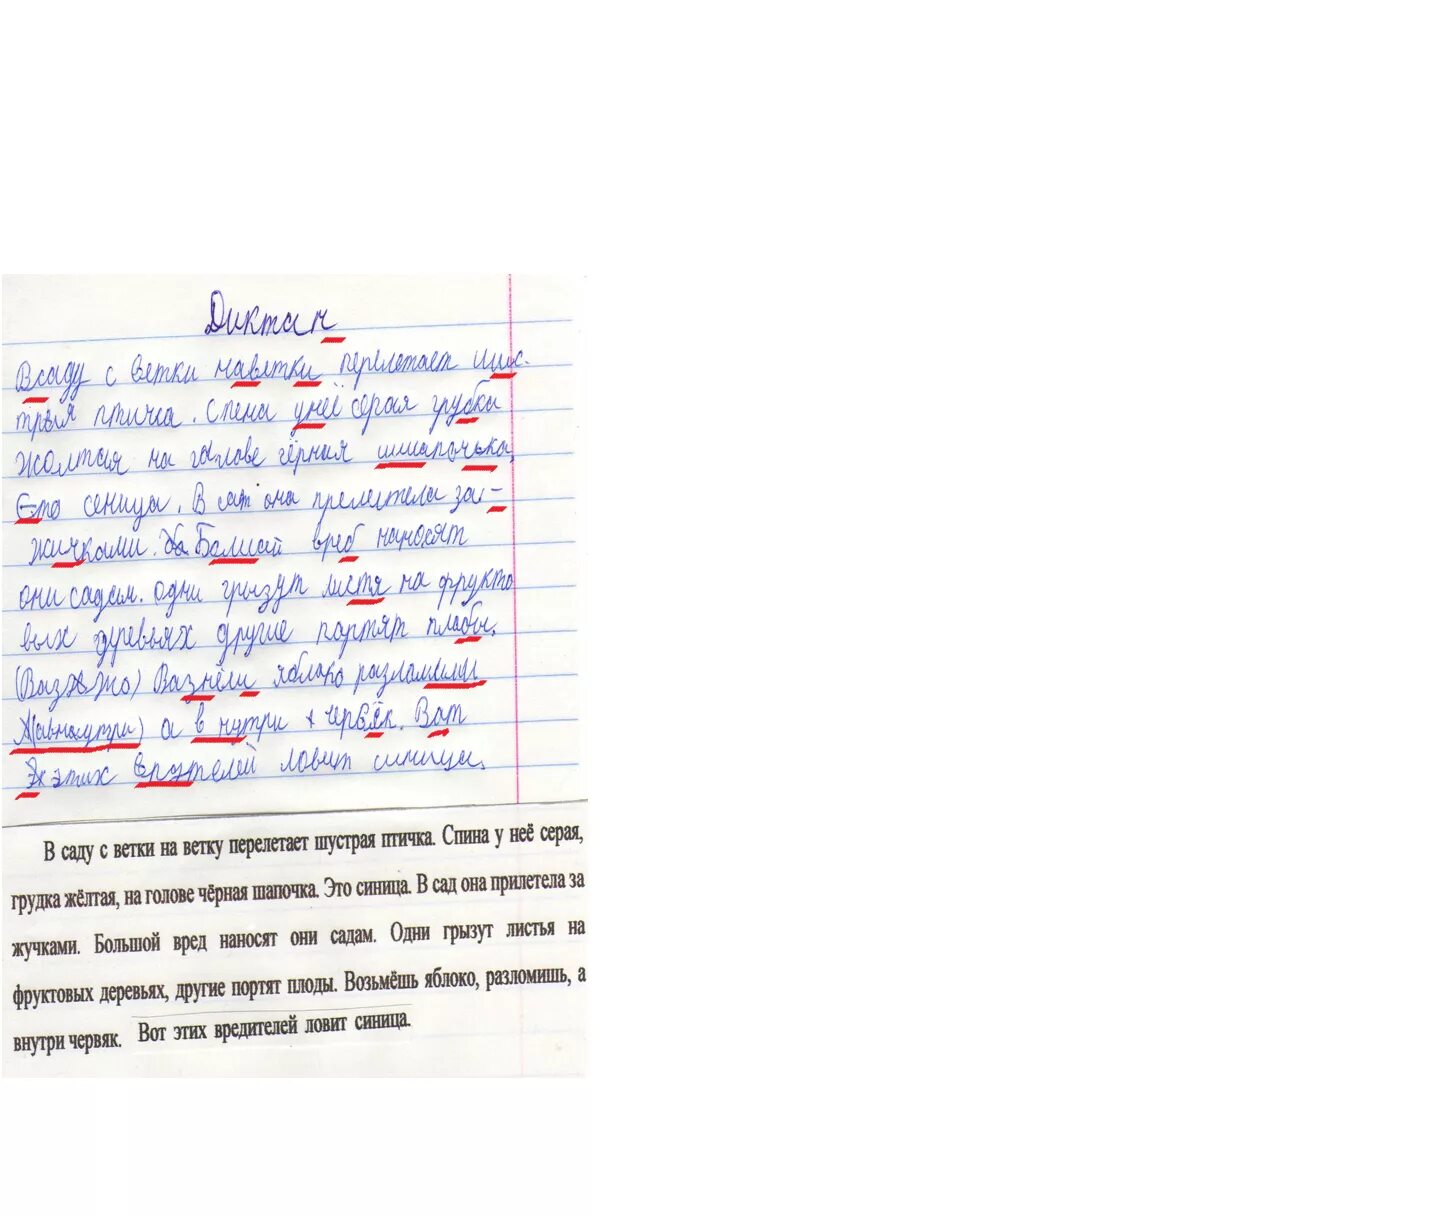 Диктан
Всаду с ветки наветки перелетает шис-
трыя птичка. Спена унеё серая грубка
жолтая на галове чёрная шшапочька,
Єто сеница. В сат она прелетела за-
жичками. Балшай вреб наносят
они садам. одни грызут листя на фрукто
вых дуревьях другие портят плабы.
(Вазжо) Вазнёли яблако разламили
а в нутри червёк. Ват
этих врэтелей ловит синица.
В саду с ветки на ветку перелетает шустрая птичка. Спина у неё серая,
грудка жёлтая, на голове чёрная шапочка. Это синица. В сад она прилетела за
жучками. Большой вред наносят они садам. Одни грызут листья на
фруктовых деревьях, другие портят плоды. Возьмёшь яблоко, разломишь, а
внутри червяк. Вот этих вредителей ловит синица.